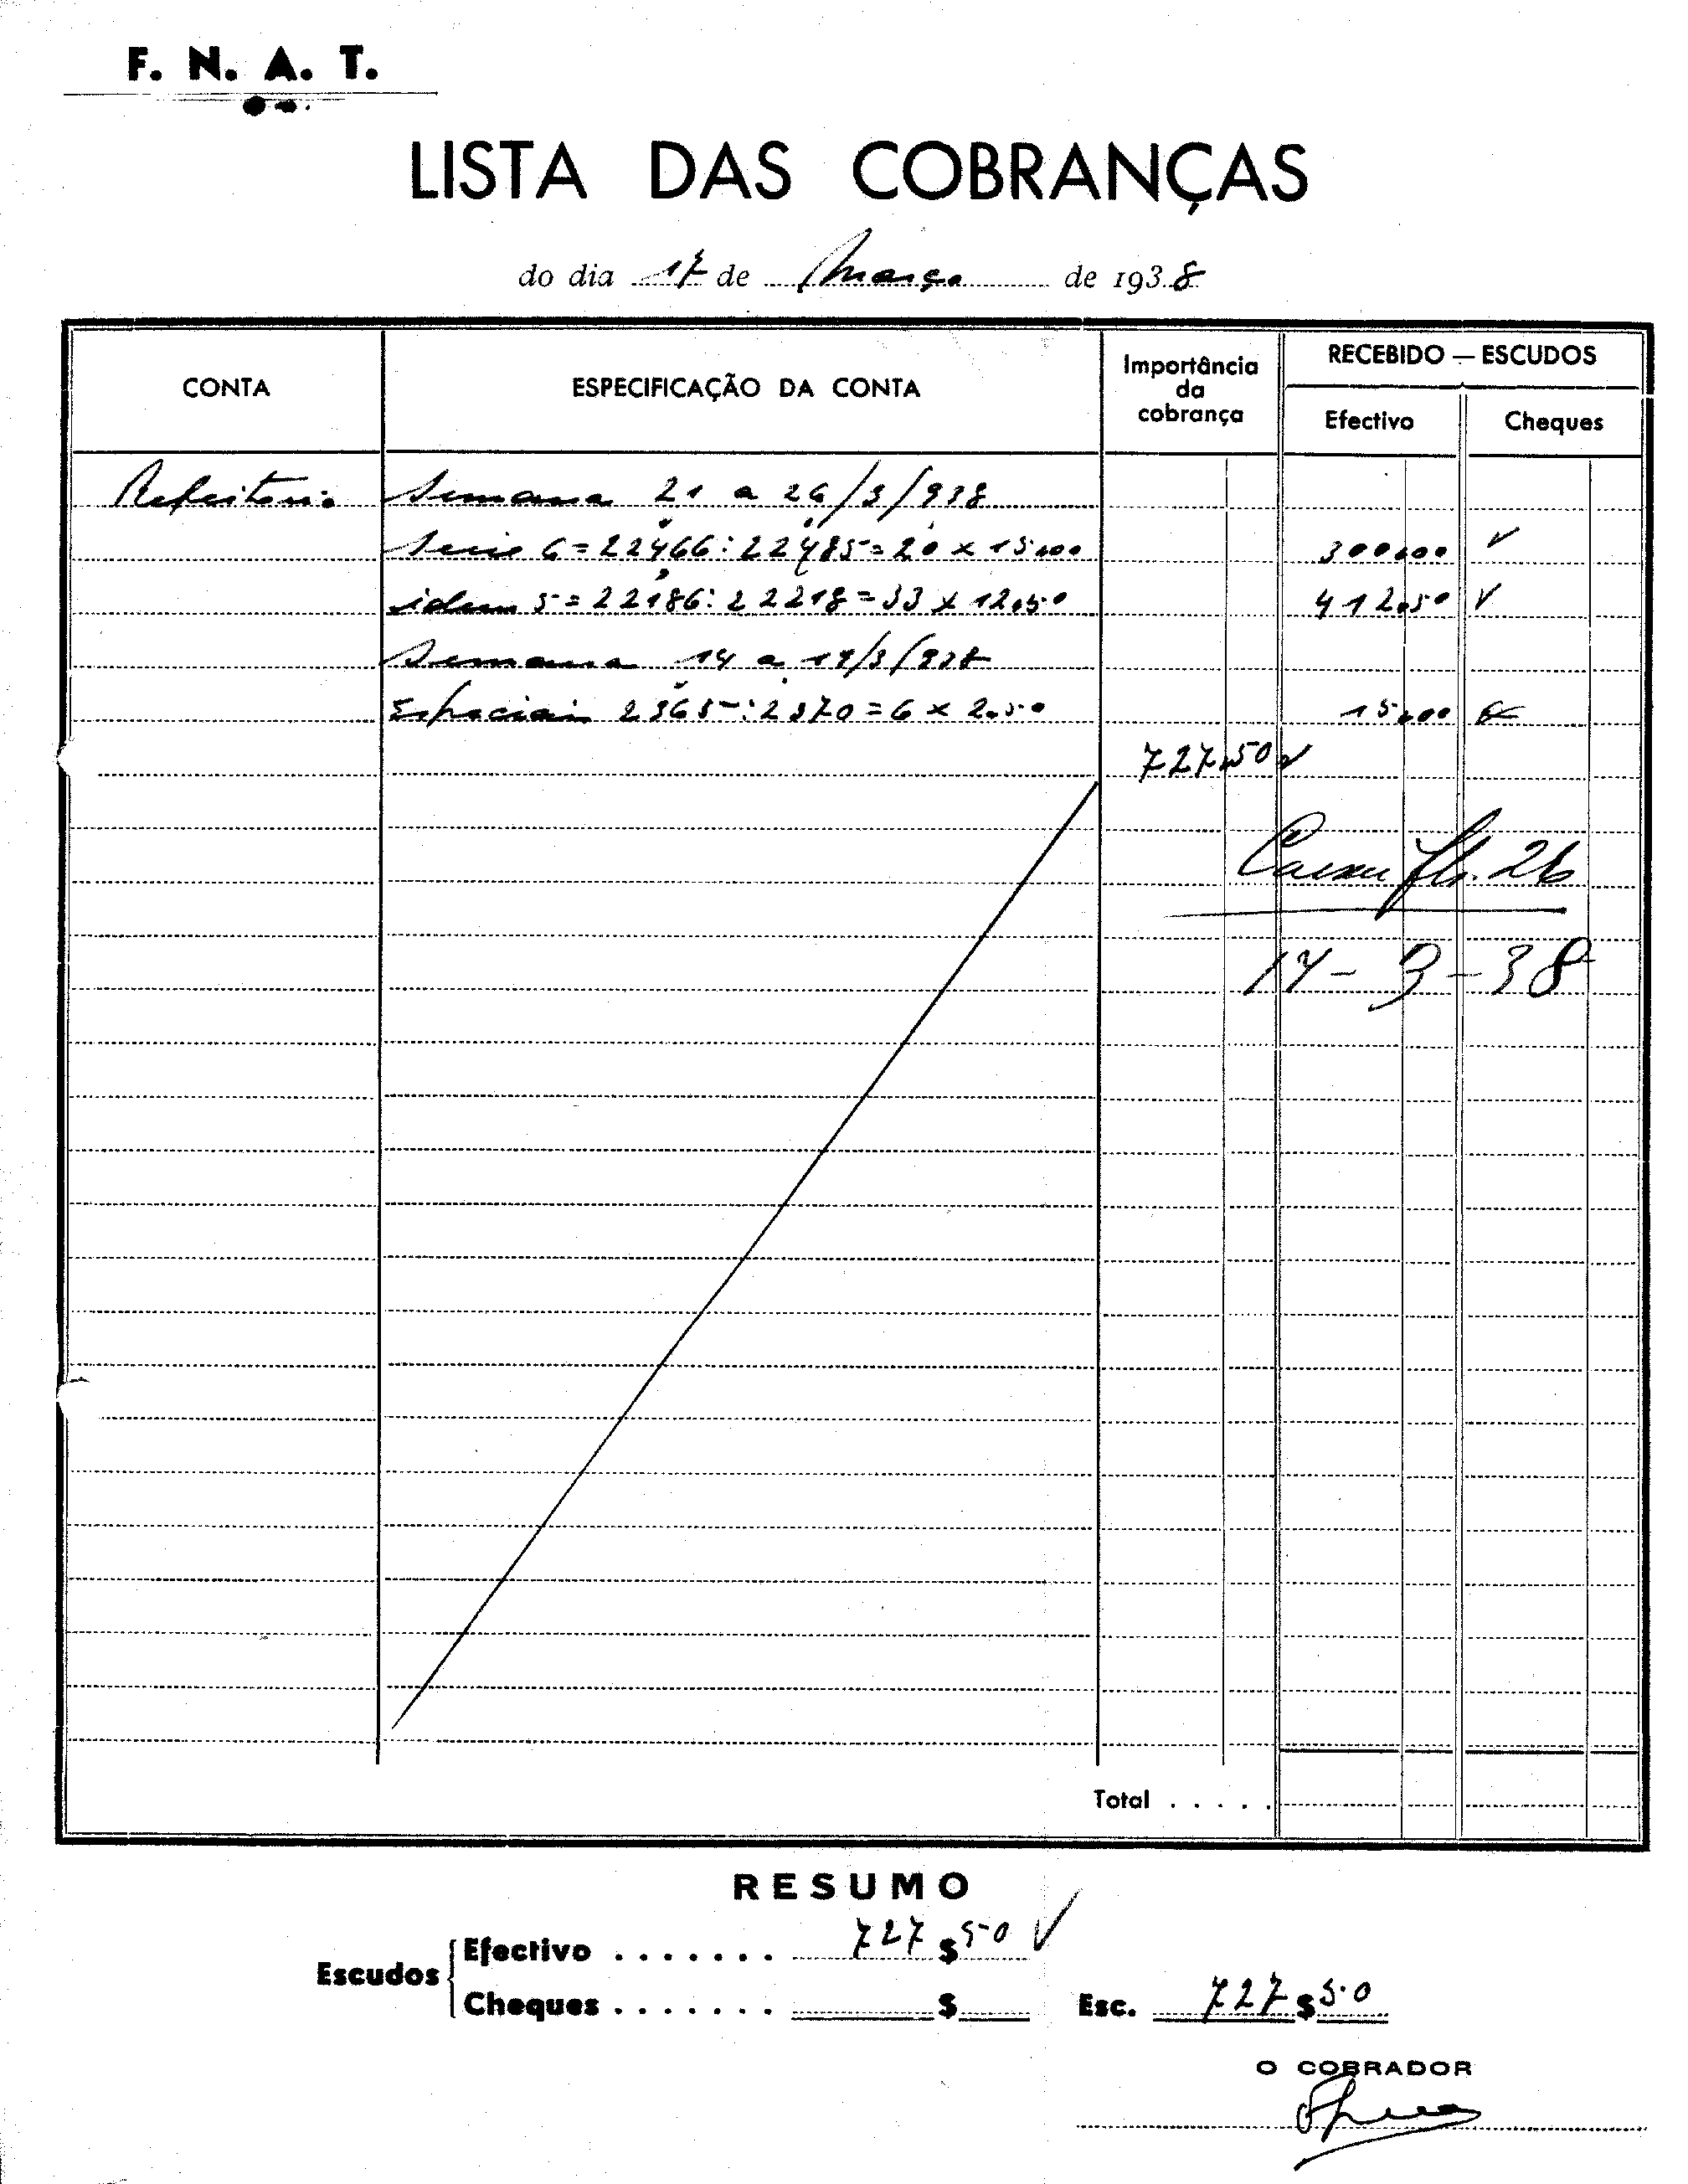 F. N. A. T.
LISTA DAS COBRANÇAS
do dia 17 de Março de 1938
CONTA
ESPECIFICAÇÃO DA CONTA
Importância
da
cobrança
RECEBIDO — ESCUDOS
Efectivo
Cheques
Refeitorio Semana 21 a 26/3/938
Serie 6=22466:22485=20 x 15,00 300,00 ✓
idem 5=22186:22218=33 x 12,50 412,50 ✓
Semana 14 a 19/3/938
Especiais 2365:2370=6 x 2,50 15,00
727,50 ✓
Caixa fls. 26
17-3-38
Total . . . . .
RESUMO
Escudos
Efectivo . . . . . . . 727$50 ✓
Cheques . . . . . . . $
Esc. 727$50
O COBRADOR